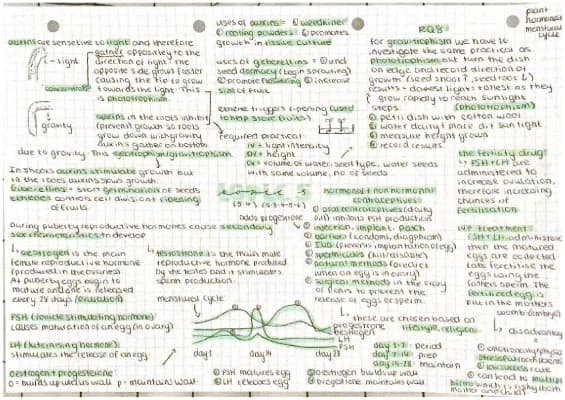 auxins are sensetive to light and therefore
gather oppositely to the
direction of light. The
opposite side grows faster
causing the tip to grow
towards the light. This
is phototropism.
light
concentrate
gravity
auxins in the roots inhibit
(prevent) growth so roots
grow down with gravity
auxins gather on bottom
due to gravity. This is geotropism/gravitropism
In shoots auxins stimulate growth but
in the roots auxins slows growth.
Giberellins = start germination of seeds
ethene = controls cell division + ripening
of fruits.
uses of auxins = ① weedkiller
② rooting powders ③ promotes
growth in tissue culture
uses of geberellins = ① end
seed dormacy (begin sprouting)
② promote flowering ③ increase
size of fruit.
ethene triggers ripening (used
to help store fruits)
required practical
IV = light intensity
DV = height
CV = volume of water, seed type, water seeds
with same volume, no of seeds
RQ8:
for gravitrophism we have to
investigate the same practical as
phototrophism but turn the dish
on edge and record direction of
growth (seed shoot, seed root)
results = lowest light = tallest as they
grow rapidly to reach sunlight
steps (phototrophism)
① petri dish with cotton wool
② water daily + place dif sun light
③ measure height grown
④ record results
plant
hormones
menstrual
cycle
During puberty reproductive hormones cause secondary
sex characteristics to develop
oestrogen is the main
female reproductive hormone
(produced in the ovaries)
At puberty eggs begin to
mature and one is released
every 28 days (ovulation)
testosterone is the main male
reproductive hormone produced
by the testes and it stimulates
sperm production.
FSH (follicle stimulating hormone)
causes maturation of an egg (in ovary)
LH (luteinising hormone)
stimulates the release of an egg.
oestrogen + progesterone
o = builds up uterus wall p = maintain wall
menstrual cycle
day 1 day 14 day 28
progestrone
oestrogen
LH
FSH
① FSH matures egg
② LH releases egg
③ oestrogen builds up wall
④ progestrone maintains wall
hormonal + non hormonal
contraceptives
① oral contraceptives (daily
pill) inhibits FSH production
② injection, implant, patch
③ barriers (condoms, diaphragm)
④ IUD (prevents implantation of egg)
⑤ spermicides (kill/disable)
⑥ natural methods (predict
when egg is in ovary)
⑦ surgical methods
to prevent the
release of eggs or sperm.
these are chosen based on
lifestyle, religion
day 1-7: period
day 7-14: prep
day 14-28: maintain
the fertility drug
FSH + LH are
administered to
increase ovulation,
therefore increasing
chances of
fertilisation
IVF treatment
FSH + LH administered
then the matured
eggs are collected
labs fertilise the
eggs using the
fathers sperm. The
fertilized egg is
put in the mothers
womb (embryo)
disadvantages
① emotionally/physically
stressful for parents
② low success rate
③ can lead to multiple
births which is risky (both
mother and child)